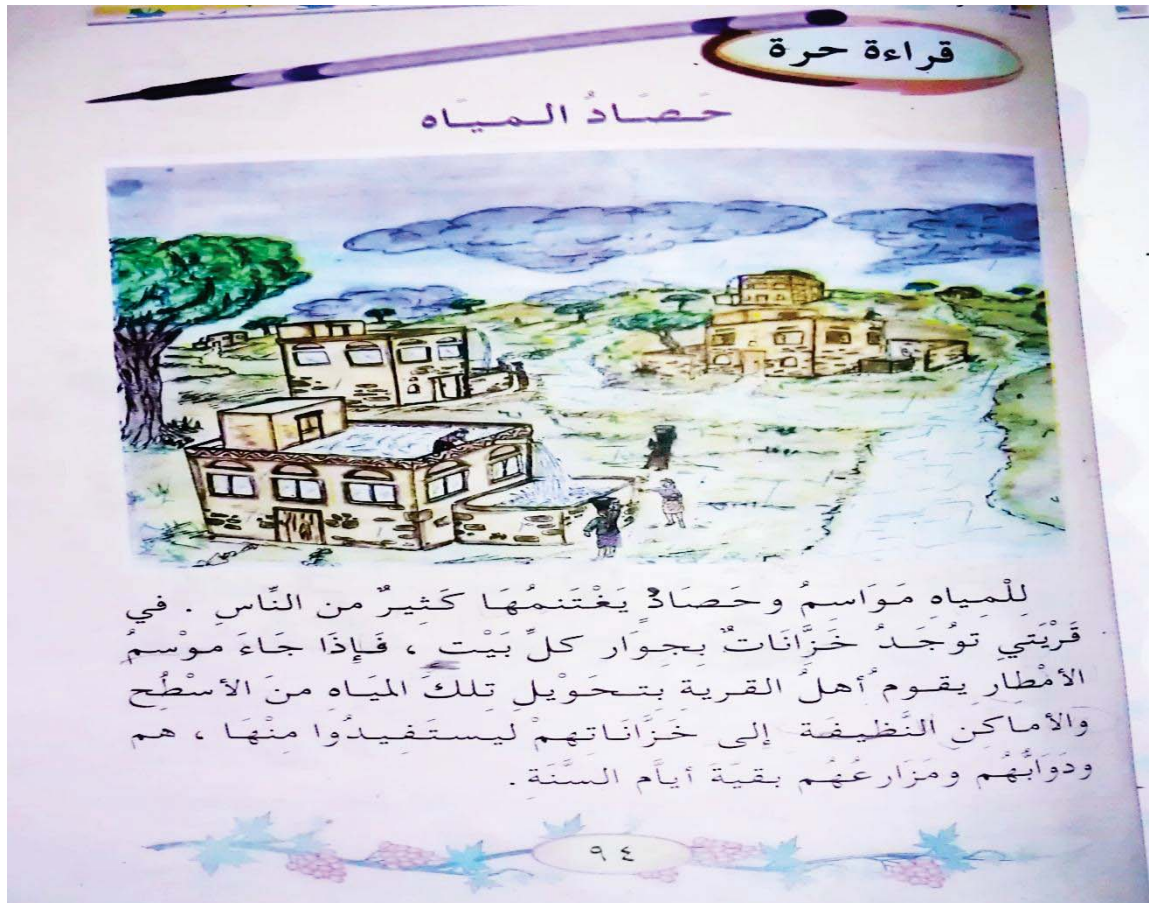 قراءة حرة
حَصَادُ المِيَاه
لِلْمِياهِ مَوَاسِمُ وحَصَادٌ يَغْتَنمُهَا كَثِيرٌ من النَّاسِ . في
قَرْيَتي توُجَدُ خَزَّانَاتٌ بِجِوَار كلِّ بَيْت ، فَإِذَا جَاءَ موْسمُ
الأمْطارِ يقوم أهلُ القريةِ بتحَوْيلِ تِلكَ الميَاهِ منَ الأسْطُحِ
والأماكنِ النَّظيفةِ إلى خَزَّانَاتِهمْ ليستَفِيدُوا مِنْهَا ، هم
ودَوَابُّهُم ومَزَارعُهُم بقيَةَ أيَّام السَّنَةِ .
٩٤